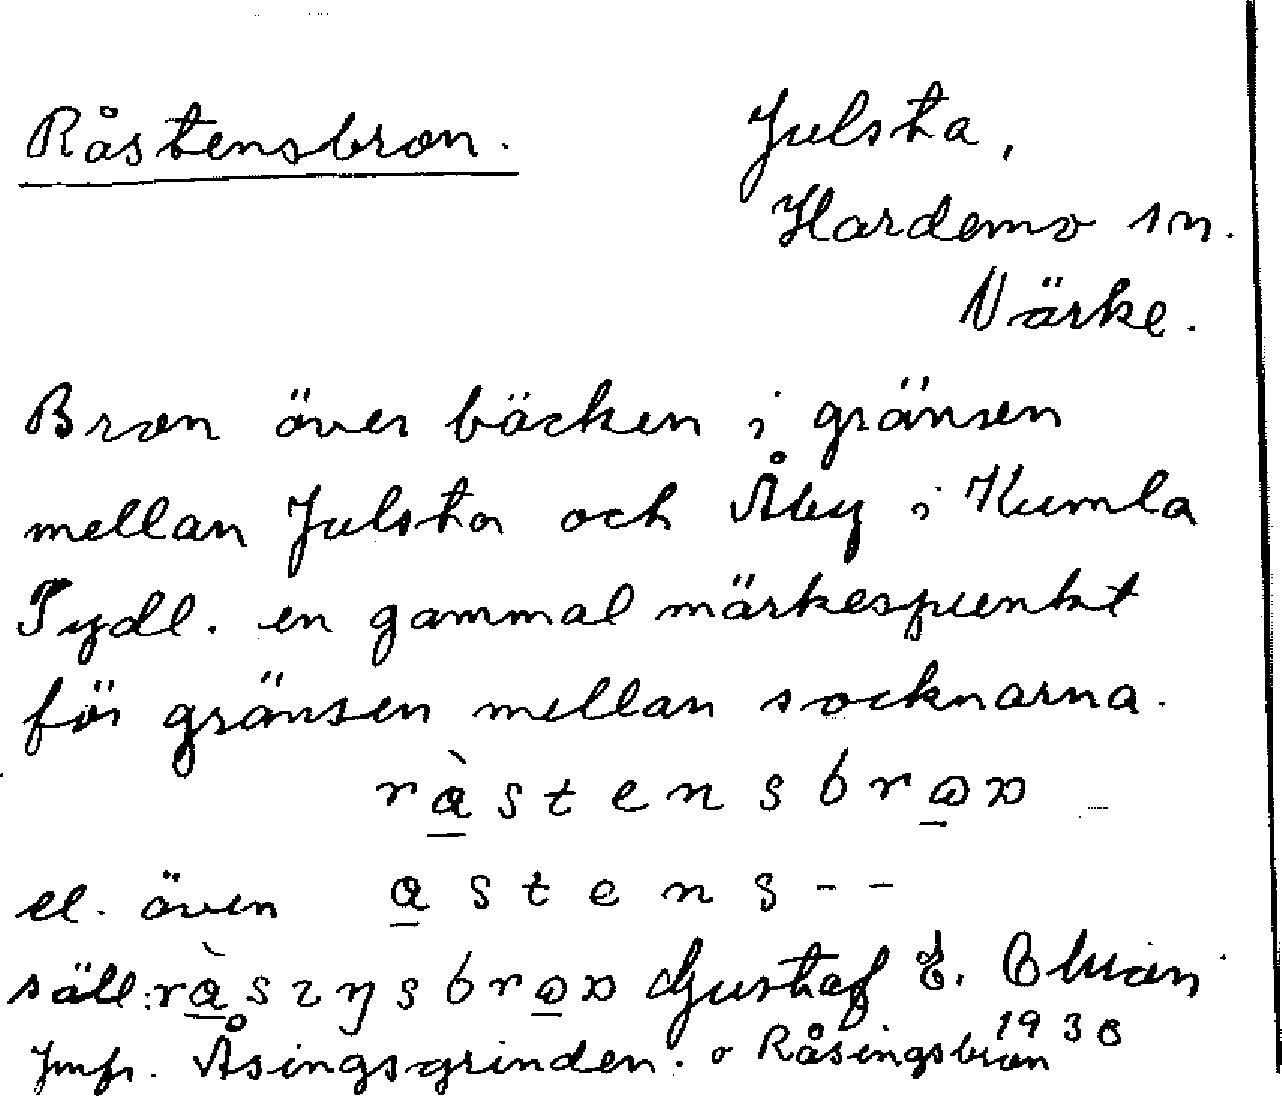 Råstensbron.
Julsta,
Hardemo sn.
Närke.
Bron över bäcken i gränsen
mellan Julsta och Åby i Kumla
Tydl. en gammal märkespunkt
för gränsen mellan socknarna.
el. även
säll: Gustaf E.
1938
Jmfr. Åsingsgrinden. o Råsingsbron